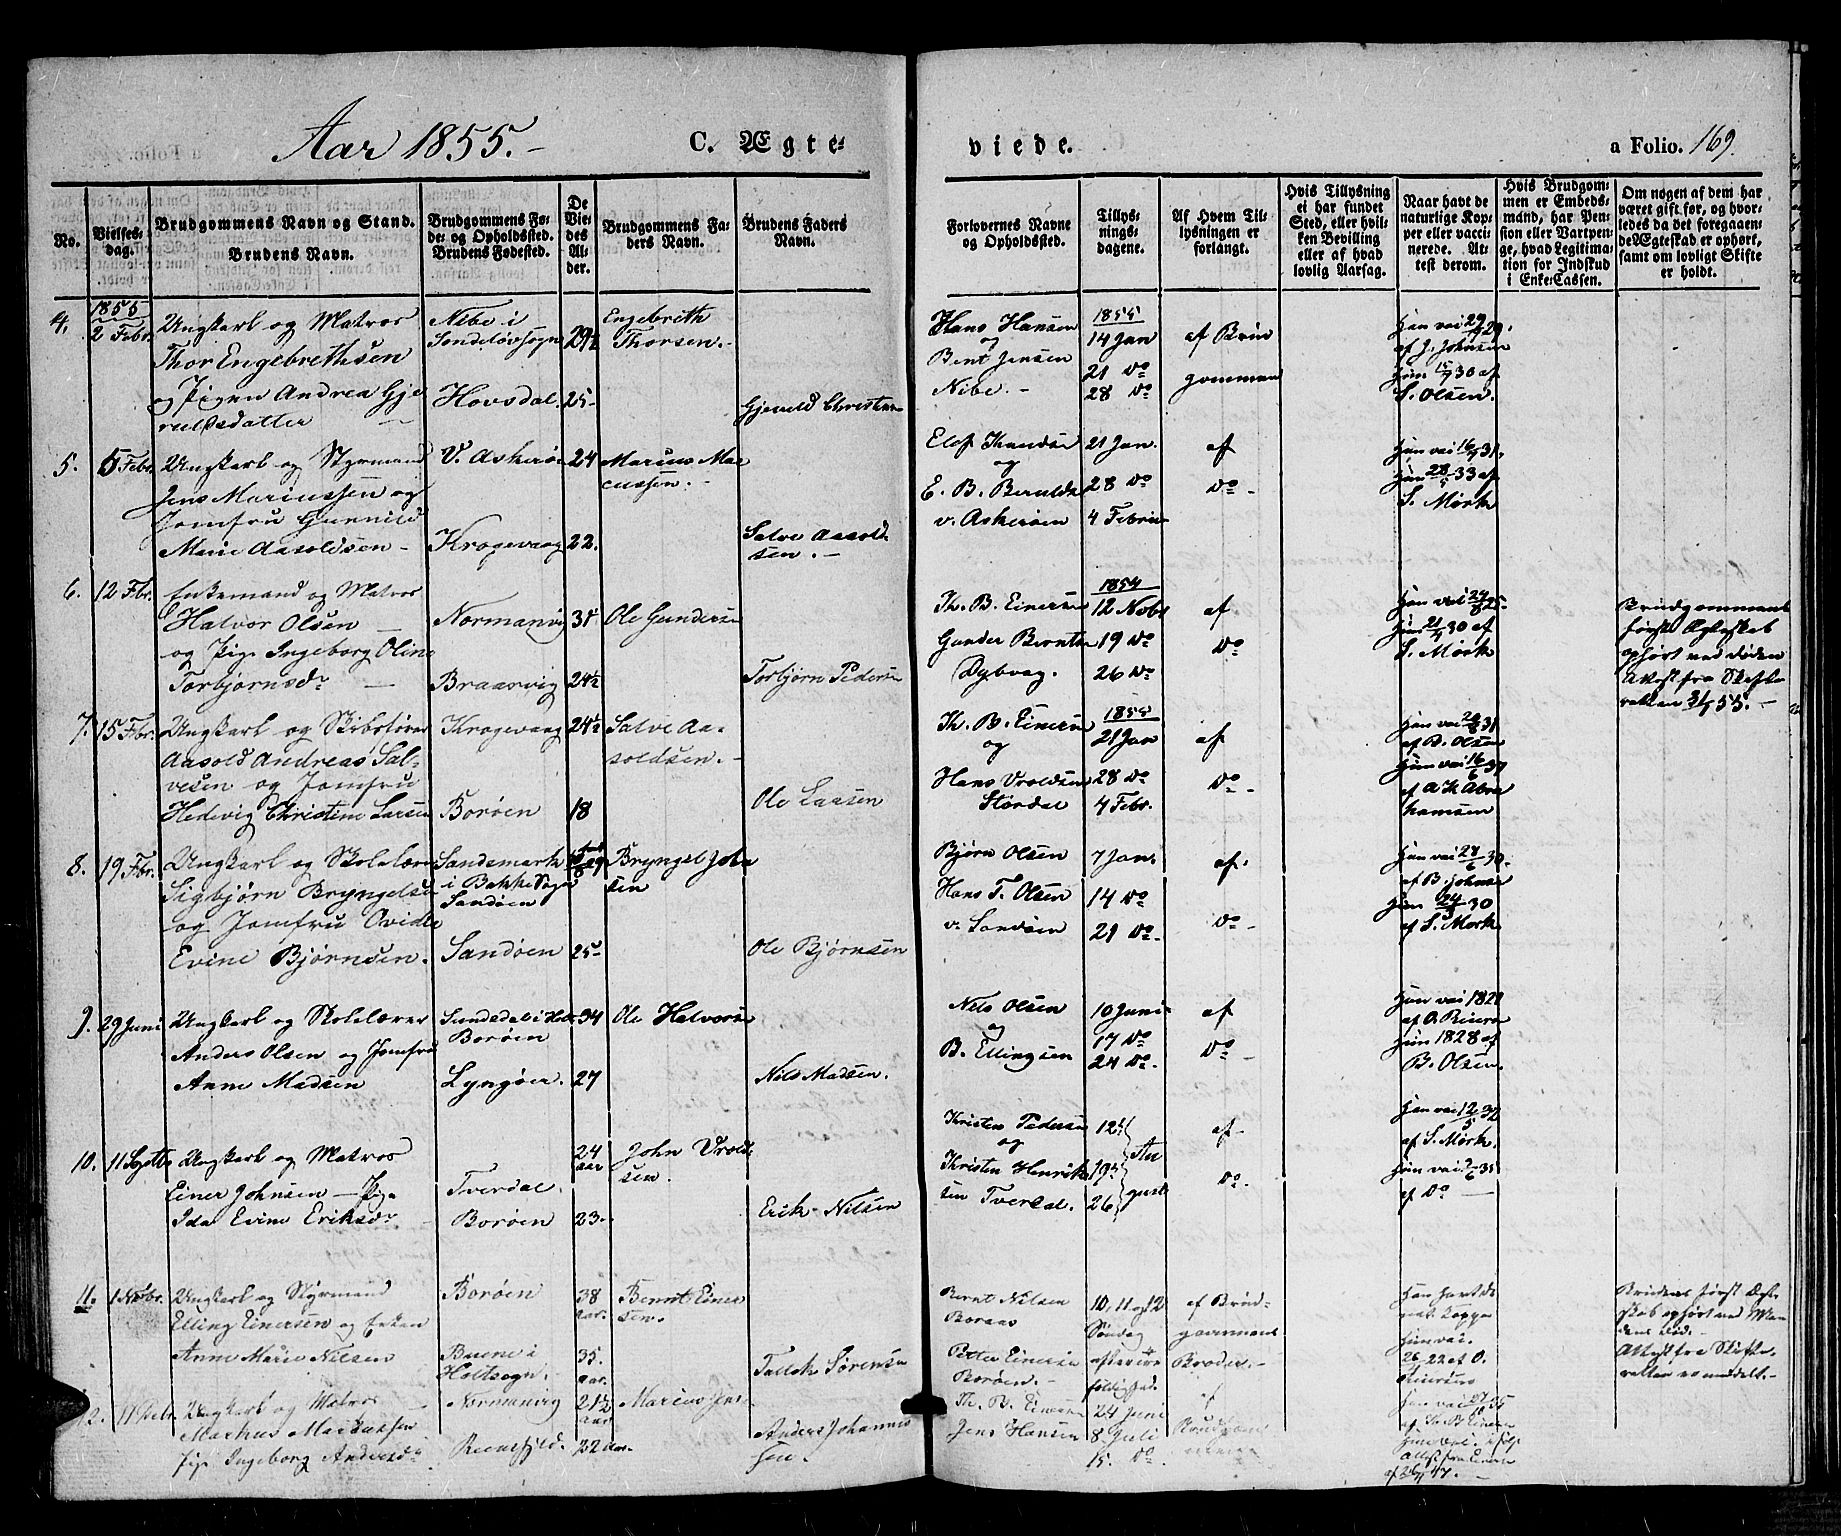 Aar 1855.
C. Ægte-
viede.
a Folio. 169.
No.
Vielses-dag.
Brudgommens Navn og Stand.
Brudens Navn.
Brudgommens Fø-
de- og Opholdssted.
Brudens Fødested.
De
Vie-
des
Al-
der.
Brudgommens Fa-
ders Navn.
Brudens Faders
Navn.
Forlovernes Navne
og Opholdssted.
Tillys-
nings-
dagene.
Af Hvem Til-
lysningen er
forlangt.
Hvis Tillysning
ei har fundet
Sted, eller hvil-
ken Bevilling
eller af hvad
lovlig Aarsag.
Naar havt de
naturlige Kop-
per eller vacci-
nerede. At-
test derom.
Hvis Brudgom-
men er Embeds-
mand, har Pen-
sion eller Vartpen-
ge, hvad Legitima-
tion for Indskud
i Enke-Cassen.
Om nogen af dem har
været gift før, og hvor-
ledes da det foregaaen-
de Ægteskab er ophørt,
samt om lovligt Skifte
er holdt.
1855
4. 2 Febr. Ungkarl og Matros
Thor Engebrethsen
og Pigen Andrea Gje
rulfsdatter
Nibe i
Søndeløvsogn
Hovsdal.
29½
25
Engebreth
Thorsen.
Gjerulf Christen
Hans Hansen
og
Bent Jensen
Nibe.
1855
14 Jan
21 do
28 do
af Brud
gommen
Han vac
af J. Johnsen
Hun 30 af
S. Olsen.
5. 5 Febr. Ungkarl og Styrmand
Jens Mariussen og
Jomfru Gunnild
Marie Aasoldsen
V. Askerøe
Krogevaag
24
22.
Marius Mar
cussen.
Salve Aasold
sen.
Elef Knudsen
og
E. B.
v. Askerøen
21 Jan.
28 do
4 Februar
af
do
Han vac 16/9 31.
Hun 28 33 af
S. Mørk
6. 12 Fbr. Enkemand og Matros
Halvor Olsen
og Pige Ingeborg Oline
Torbjørnsdr
Normanvig
Braarvig
31
24½
Ole Gundersen
Torbjørn Pedersen
Th. B. Einersen
Gunder Berntsen
Dybvag.
1854
12 Nobr
19 do
26 do
af
do
Han vac
Hun 21 30 af
S. Mørk
Brudgommens
første Ægteskab
ophørt ved Døden
Attest fra Skifte
retten 55.
7. 15 Fbr. Ungkarl og Skibsfører
Aasold Andreas Sal-
vesen og Jomfru
Hedevig Christine Larsen
Krogevaag
Borøen
24½
18
Salve Aa-
soldsen.
Ole Larsen
Th. B. Einersen
og
Hans Vroldsen
Stordal
1855
21 Jan
28 do
4 Febr.
af
do
Han vac 31
af B. Olsen
Hun vac 16/6 37
af A K Abra
hamsen
8. 19 Fbr. Ungkarl og Skolelærer
Sigbjørn Bryngelsen
og Jomfru Ovidie
Evine Bjørnsen.
Sandsmark
i Bakke Sogn
Sandøen
Sandøen
25
Bryngel John
sen
Ole Bjørnsen
Bjørn Olsen
Hans T. Olsen
v. Sandøen
7 Jan.
14 do
21 do
af
do
Han vac 28/6 30.
af B. Johnsen
Hun 24 30
af S. Mørk
9. 29 Juni Ungkarl og Skolelærer
Anders Olsen og Jomfru
Anne Madsen
Sundsdal i Holt
Borøen
Lyngøer.
34
27
Ole Halvorsen
Nils Madsen.
Nels Olsen
og
B. Ellingsen
10 Juni
17 do
24 do
af
do
Han vac 1821
Hun 1828 af
B. Olsen.
10. 11 Septb Ungkarl og Matros
Einer Johnsen – Pige
Ida Evine Eriksdr
Tverdal.
Borøen
24
aar
23
John Vrold
sen.
Erik Nilsen
Kristen Pedersen
og
Kristen Henrik
sen Tverdal.
12
19
26
Au
gust
af
do
Han vac 12/5 32
af S. Mørk.
Hun vac 35
af do
11. 1 Nobr. Ungkarl og Styrmand
Elling Einersen og Enken
Anne Marie Nilsen
Borøen
Buene i
Holtsogn.
38
aar.
35.
aar.
Bernt Einer
sen.
Tallak Sørensen
Bernt Nilsen
Boraas
Petter Einersen
Borøen.
10, 11 og 12
Søndag
af Brud-
gommens
Broder.
Han havde
nat. Kopper
Hun vac.
26 22 af O.
Brudens først Ægte
skab ophørt ved Man
dens Død.
Attest fra Skifte-
retten er meddelt.
12. 11 Ungkarl og Matros
Markus
Pige Ingeborg Andersdr
Normanvig
21½
aar
22 aar.
Marius Jens
Anders Johannes
sen.
Th. B. Einersen
Jens Hansen
24 Juni
8 Juli
15. do
af
Brudgom
Han vac
af Th. B. Einersen
Hun vac.
Attest fra Einersen